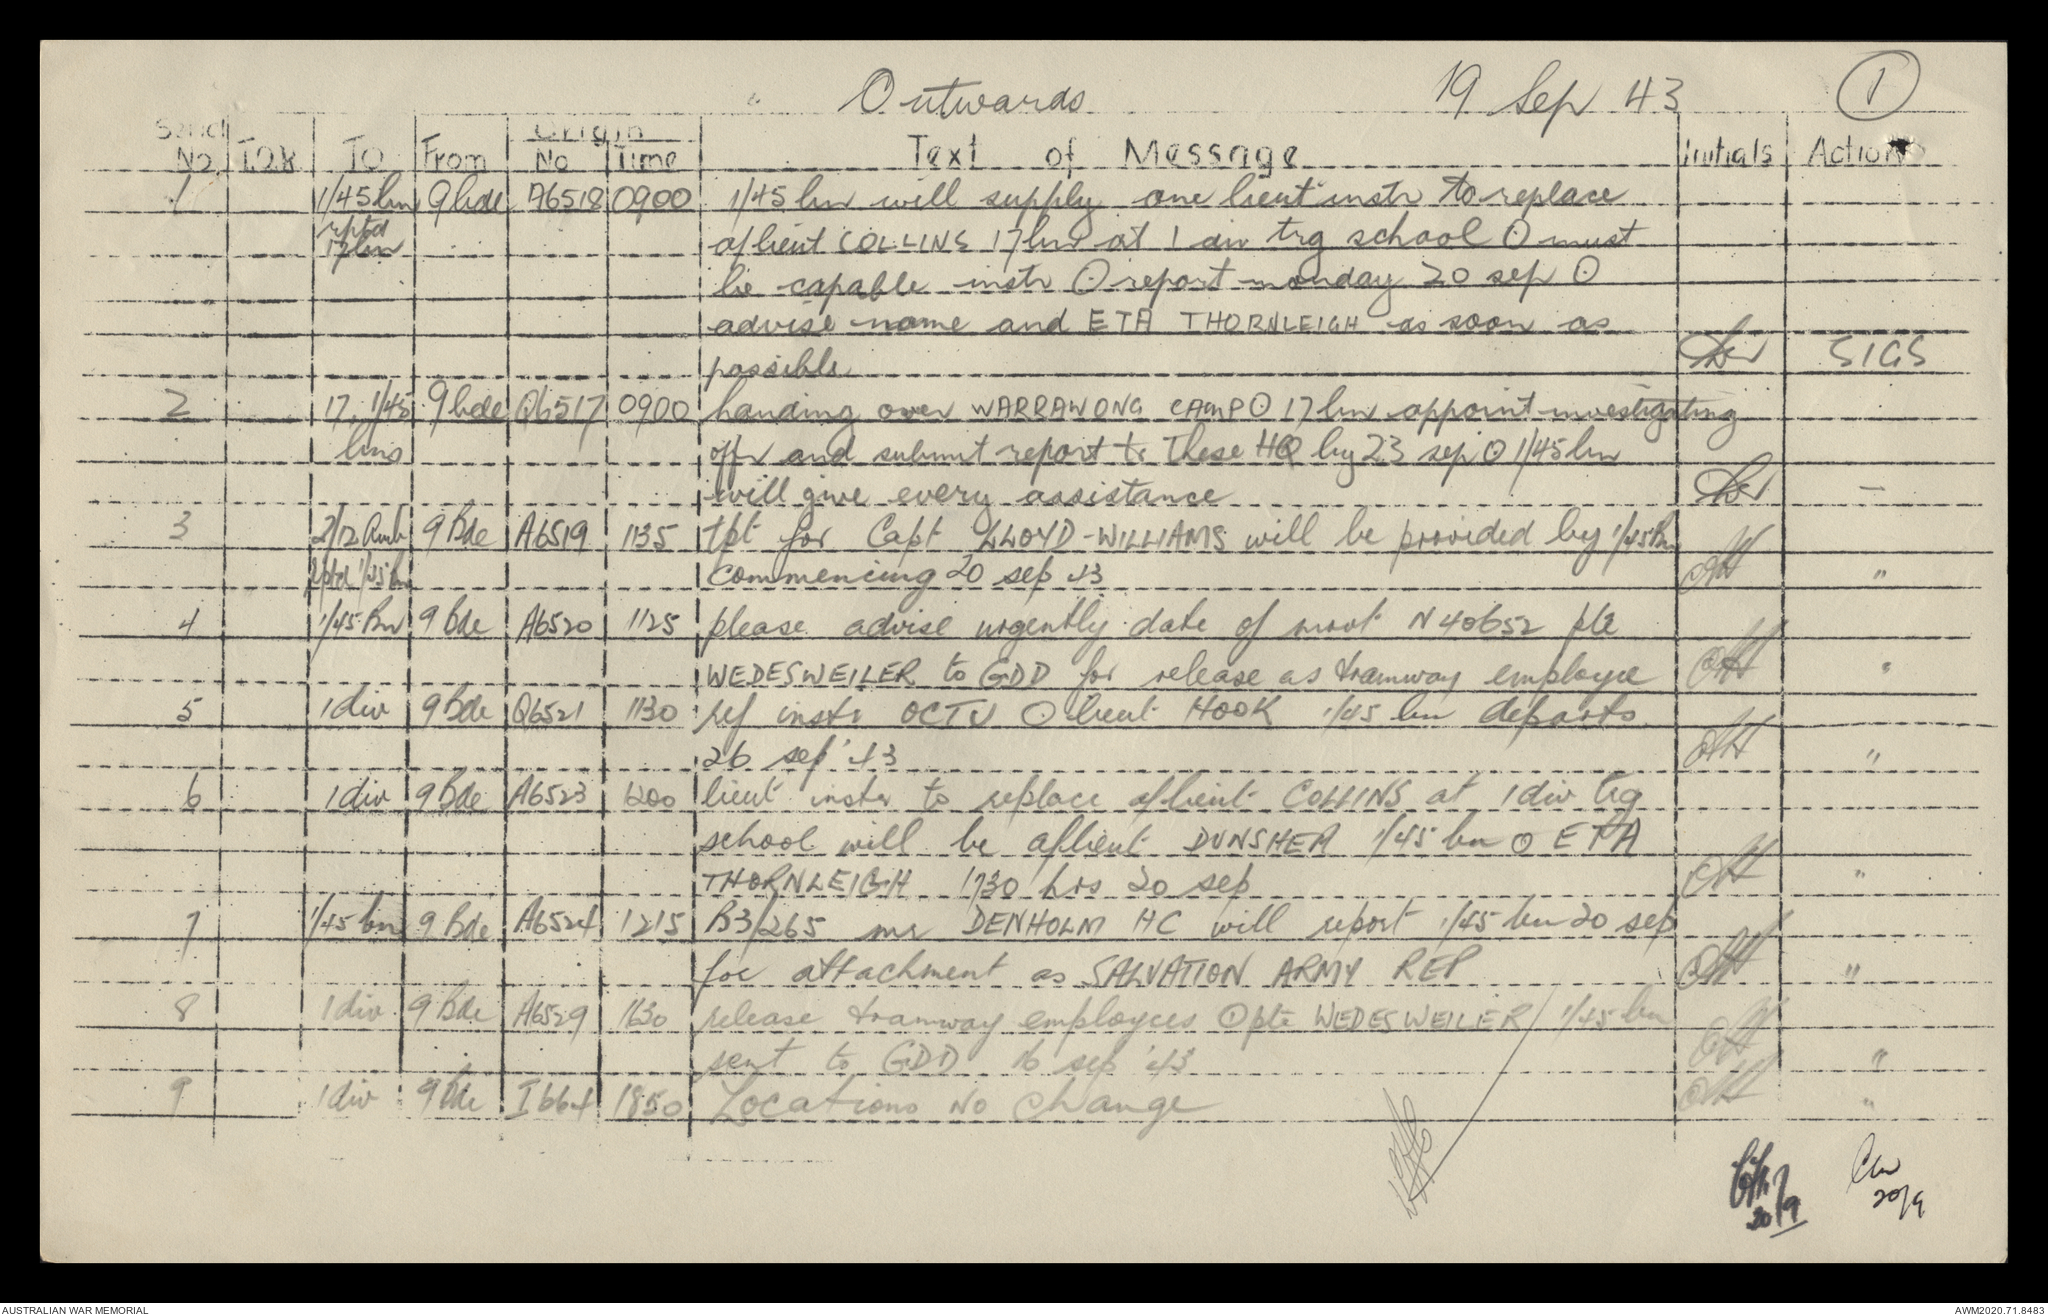 Outwards 19 Sep 43 1
Serial Origin
No I.2.R TO From No Time Text of Message Initials Action
1 1/45 bn 9 bde A6518 0900 1/45 bn will supply one lieut instr to replace
rptd
17 bn a/lieut COLLINS 17 bn at 1 div trg school O must
be capable instr O report monday 20 sep O
advise name and ETA THORNLEIGH as soon as
possible SIGS
2 17, 1/45 9 bde Q6517 0900 handing over WARRAWONG CAMP O 17 bn appoint investigating
bns offr and submit report to these HQ by 23 sep O 1/45 bn
will give every assistance -
3 2/12 9 Bde A6519 1135 tpt for Capt LLOYD-WILLIAMS will be provided by 1/45 Bn
rptd 1/45 bn commencing 20 sep 43 "
4 1/45 Bn 9 Bde A6520 1125 please advise urgently date of movt N40652 pte
WEDESWEILER to GDD for release as tramway employee "
5 1 div 9 Bde Q6521 1130 ref instr OCTU O lieut HOOK 1/45 bn departs
26 sep '43 "
6 1 div 9 Bde A6523 1200 lieut instr to replace a/lieut COLLINS at 1 div trg
school will be a/lieut DUNSHEA 1/45 bn O ETA
THORNLEIGH 1730 hrs 20 sep "
7 1/45 bn 9 Bde A6524 1215 B3/265 mr DENHOLM HC will report 1/45 bn 20 sep
for attachment as SALVATION ARMY REP "
8 1 div 9 Bde A6529 1630 release tramway employees O pte WEDESWEILER 1/45 bn
sent to GDD 16 sep '43 "
9 1 div 9 Bde I664 1850 Locations No Change "
20/9 20/9
AUSTRALIAN WAR MEMORIAL AWM2020.71.8483